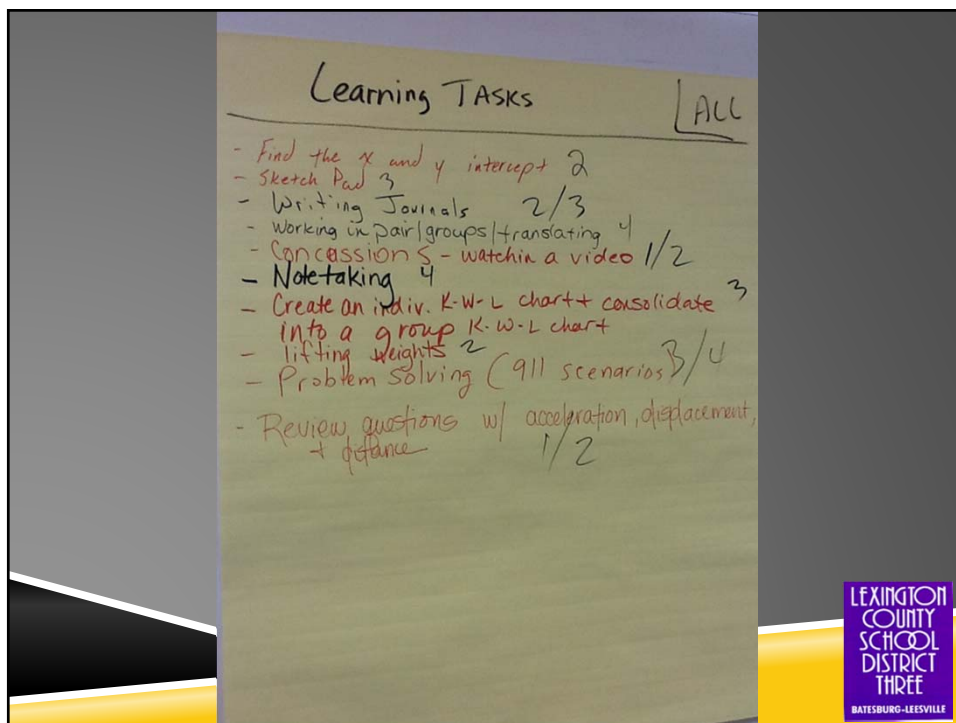 Learning TASKS
ALL
- Find the x and y intercept 2
- Sketch Pad 3
- Writing Journals 2/3
- Working in pair/groups/translating 4
- Concassions - watchin a video 1/2
- Notetaking 4
- Create an indiv. K-W-L chart + consolidate 3
into a group K-W-L chart
- lifting weights 2
- Problem Solving (911 scenarios 3/4
- Review questions w/ acceleration, displacement,
+ distance 1/2
LEXINGTON
COUNTY
SCHOOL
DISTRICT
THREE
BATESBURG-LEESVILLE